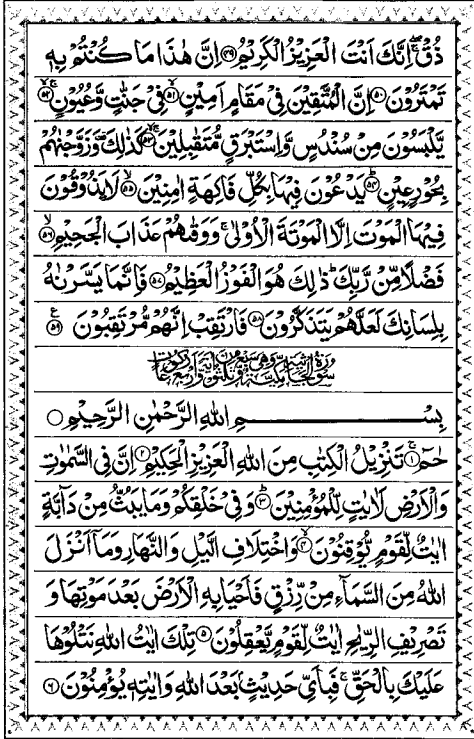 ذُقْ ۙۚ اِنَّكَ اَنْتَ الْعَزِيْزُ الْكَرِيْمُ ﴿۴۹﴾ اِنَّ هٰذَا مَا كُنْتُمْ بِهٖ
تَمْتَرُوْنَ ﴿۵۰﴾ اِنَّ الْمُتَّقِيْنَ فِيْ مَقَامٍ اَمِيْنٍ ﴿۵۱﴾ فِيْ جَنّٰتٍ وَّعُيُوْنٍ ﴿۵۲﴾
يَّلْبَسُوْنَ مِنْ سُنْدُسٍ وَّاِسْتَبْرَقٍ مُّتَقٰبِلِيْنَ ﴿۵۳﴾ كَذٰلِكَ وَزَوَّجْنٰهُمْ
بِحُوْرٍ عِيْنٍ ﴿۵۴﴾ يَدْعُوْنَ فِيْهَا بِكُلِّ فَاكِهَةٍ اٰمِنِيْنَ ﴿۵۵﴾ لَا يَذُوْقُوْنَ
فِيْهَا الْمَوْتَ اِلَّا الْمَوْتَةَ الْاُوْلٰى ۚ وَوَقٰىهُمْ عَذَابَ الْجَحِيْمِ ﴿۵۶﴾
فَضْلًا مِّنْ رَّبِّكَ ؕ ذٰلِكَ هُوَ الْفَوْزُ الْعَظِيْمُ ﴿۵۷﴾ فَاِنَّمَا يَسَّرْنٰهُ
بِلِسَانِكَ لَعَلَّهُمْ يَتَذَكَّرُوْنَ ﴿۵۸﴾ فَارْتَقِبْ اِنَّهُمْ مُّرْتَقِبُوْنَ ﴿۵۹﴾
سورة الجاثية مكية وهي سبع وثلثون اية واربع ركوعات
بِسْمِ اللهِ الرَّحْمٰنِ الرَّحِيْمِ ○
حٰمٓ ﴿۱﴾ تَنْزِيْلُ الْكِتٰبِ مِنَ اللهِ الْعَزِيْزِ الْحَكِيْمِ ﴿۲﴾ اِنَّ فِي السَّمٰوٰتِ
وَالْاَرْضِ لَاٰيٰتٍ لِّلْمُؤْمِنِيْنَ ﴿۳﴾ وَفِيْ خَلْقِكُمْ وَمَا يَبُثُّ مِنْ دَآبَّةٍ
اٰيٰتٌ لِّقَوْمٍ يُّوْقِنُوْنَ ﴿۴﴾ وَاخْتِلَافِ الَّيْلِ وَالنَّهَارِ وَمَآ اَنْزَلَ
اللهُ مِنَ السَّمَآءِ مِنْ رِّزْقٍ فَاَحْيَا بِهِ الْاَرْضَ بَعْدَ مَوْتِهَا وَ
تَصْرِيْفِ الرِّيٰحِ اٰيٰتٌ لِّقَوْمٍ يَّعْقِلُوْنَ ﴿۵﴾ تِلْكَ اٰيٰتُ اللهِ نَتْلُوْهَا
عَلَيْكَ بِالْحَقِّ ۚ فَبِاَيِّ حَدِيْثٍۭ بَعْدَ اللهِ وَاٰيٰتِهٖ يُؤْمِنُوْنَ ﴿۶﴾